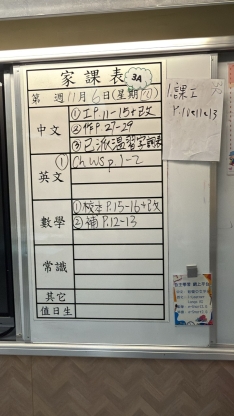 家課表 3A
第 週 11月6日(星期四)
中文
①工P.11-15+改
②作P.27-29
③已派溫習字詞表
英文
① Ch WS p.1-2
數學
①校本P.15-16+改
②補P.12-13
常識
其它
值日生
1.課工
P.10,11,13